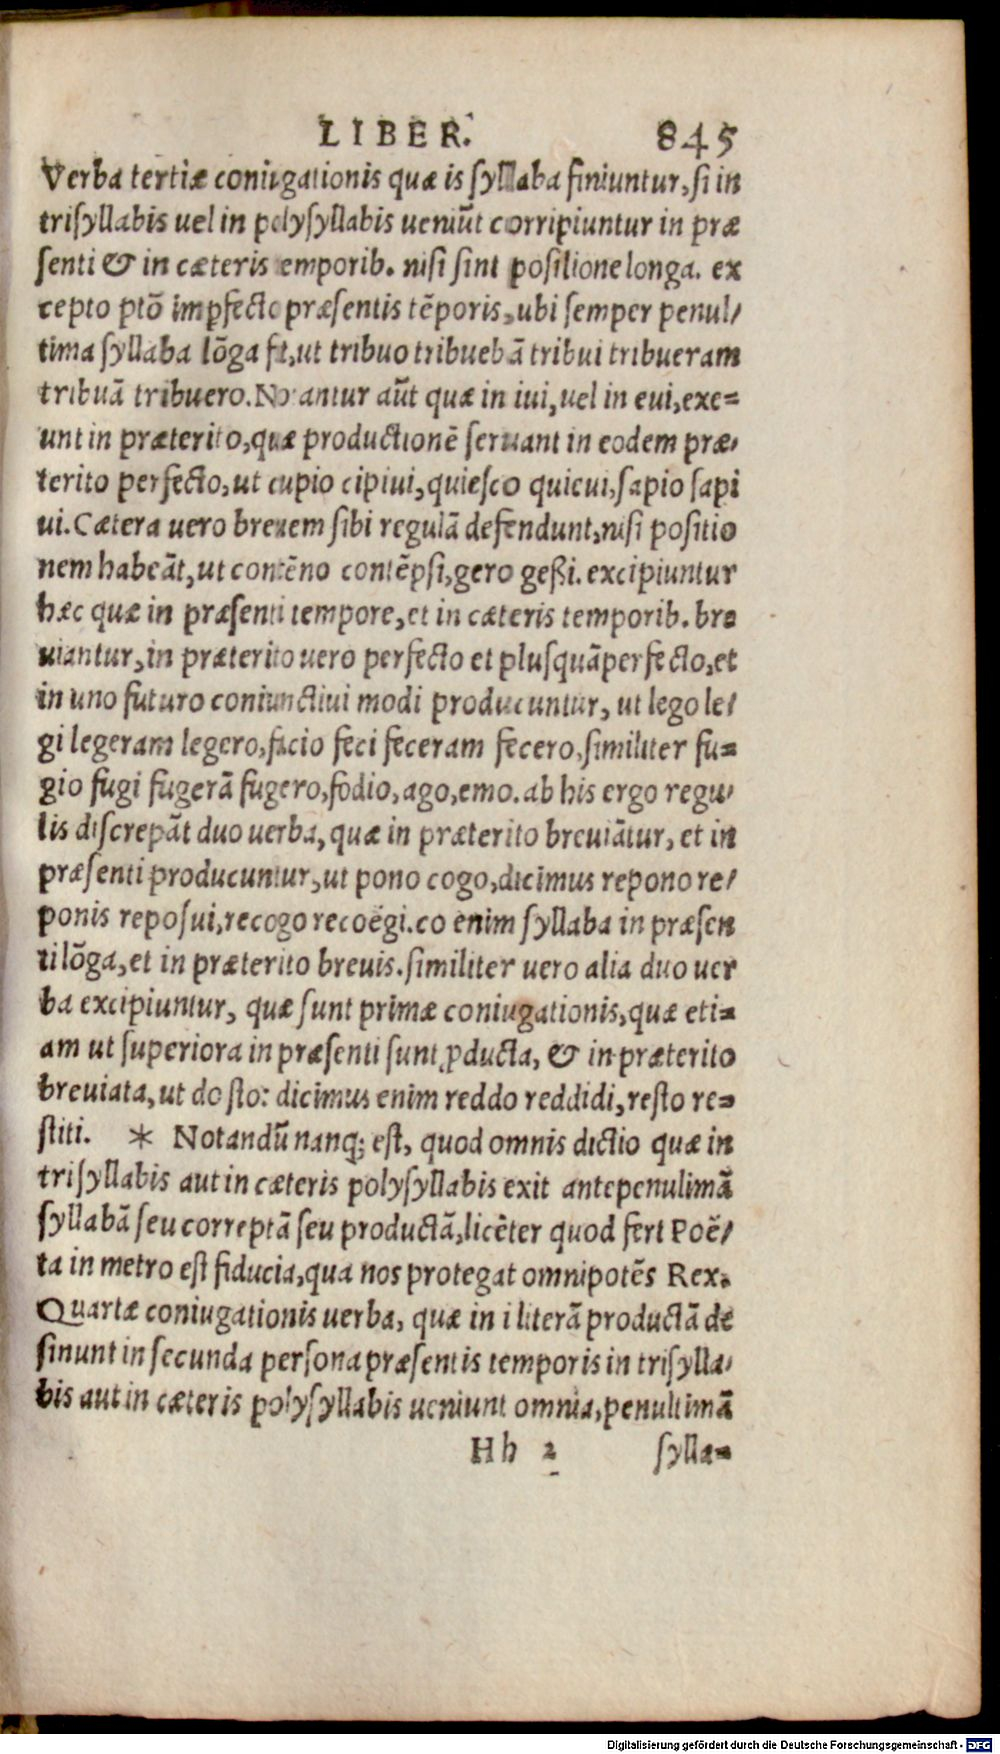 LIBER. 845
Verba tertiæ coniugationis quæ is ſyllaba finiuntur, ſi in
triſyllabis uel in polyſyllabis ueniūt corripiuntur in præ
ſenti & in cæteris temporib. niſi ſint poſitione longa. ex
cepto ptō imꝑfecto præſentis tēporis, ubi ſemper penul/
tima ſyllaba lōga fit, ut tribuo tribuebā tribui tribueram
tribuā tribuero. Notantur aūt quæ in iui, uel in eui, exe=
unt in præterito, quæ productionē ſeruant in eodem præ/
terito perfecto, ut cupio cipiui, quieſco quieui, ſapio ſapi
ui. Cætera uero breuem ſibi regulā defendunt, niſi poſitio
nem habeāt, ut contēno contēpſi, gero geßi. excipiuntur
hæc quæ in præſenti tempore, et in cæteris temporib. bre
uiantur, in præterito uero perfecto et pluſquāperfecto, et
in uno futuro coniunctiui modi producuntur, ut lego le/
gi legeram legero, facio feci feceram fecero, ſimiliter fu=
gio fugi fugerā fugero, fodio, ago, emo. ab his ergo regu/
lis diſcrepāt duo uerba, quæ in præterito breuiātur, et in
præſenti producuntur, ut pono cogo, dicimus repono re/
ponis repoſui, recogo recoëgi. co enim ſyllaba in præſen
ti lōga, et in præterito breuis. ſimiliter uero alia duo uer
ba excipiuntur, quæ ſunt primæ coniugationis, quæ eti=
am ut ſuperiora in præſenti ſunt ꝓducta, & in præterito
breuiata, ut do ſto: dicimus enim reddo reddidi, reſto re=
ſtiti. * Notandū nanq; eſt, quod omnis dictio quæ in
triſyllabis aut in cæteris polyſyllabis exit antepenulimā
ſyllabā ſeu correptā ſeu productā, licēter quod fert Poë/
ta in metro eſt fiducia, qua nos protegat omnipotēs Rex.
Quartæ coniugationis uerba, quæ in i literā productā de
ſinunt in ſecunda perſona præſentis temporis in triſylla/
bis aut in cæteris polyſyllabis ueniunt omnia, penultimā
Hh 2 ſylla=
Digitalisierung gefördert durch die Deutsche Forschungsgemeinschaft - DFG